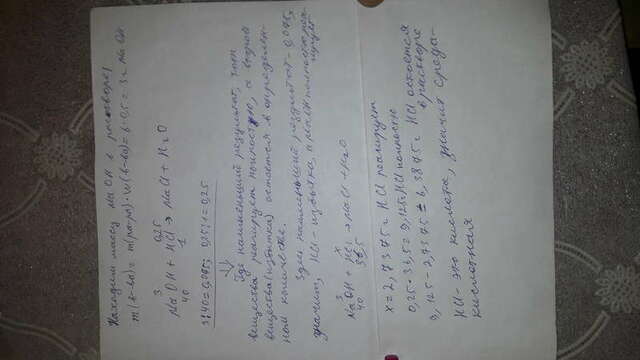 Находим массу NaOH в растворе)
m(в-ва) = m(ра-ра)·w(в-ва) = 6·0,5 = 3 г NaOH
3 0,25
NaOH + HCl → NaCl + H2O
40 1
3:40=0,075; 0,25:1=0,25
Где наименьший результат, то
вещество реагирует полностью, а второе
вещество (избыток) остается в определен-
ном количестве.
Здесь наименьший результат - 0,075,
значит, HCl - избыток, а реаг. полностью
3 x
NaOH + HCl → NaCl + H2O
40 36,5
x = 2,7375 г HCl реагирует
0,25·36,5 = 9,125 г HCl полностью
9,125 - 2,7375 = 6,3875 г HCl остается
в растворе
HCl - это кислота, значит среда-
кислотная